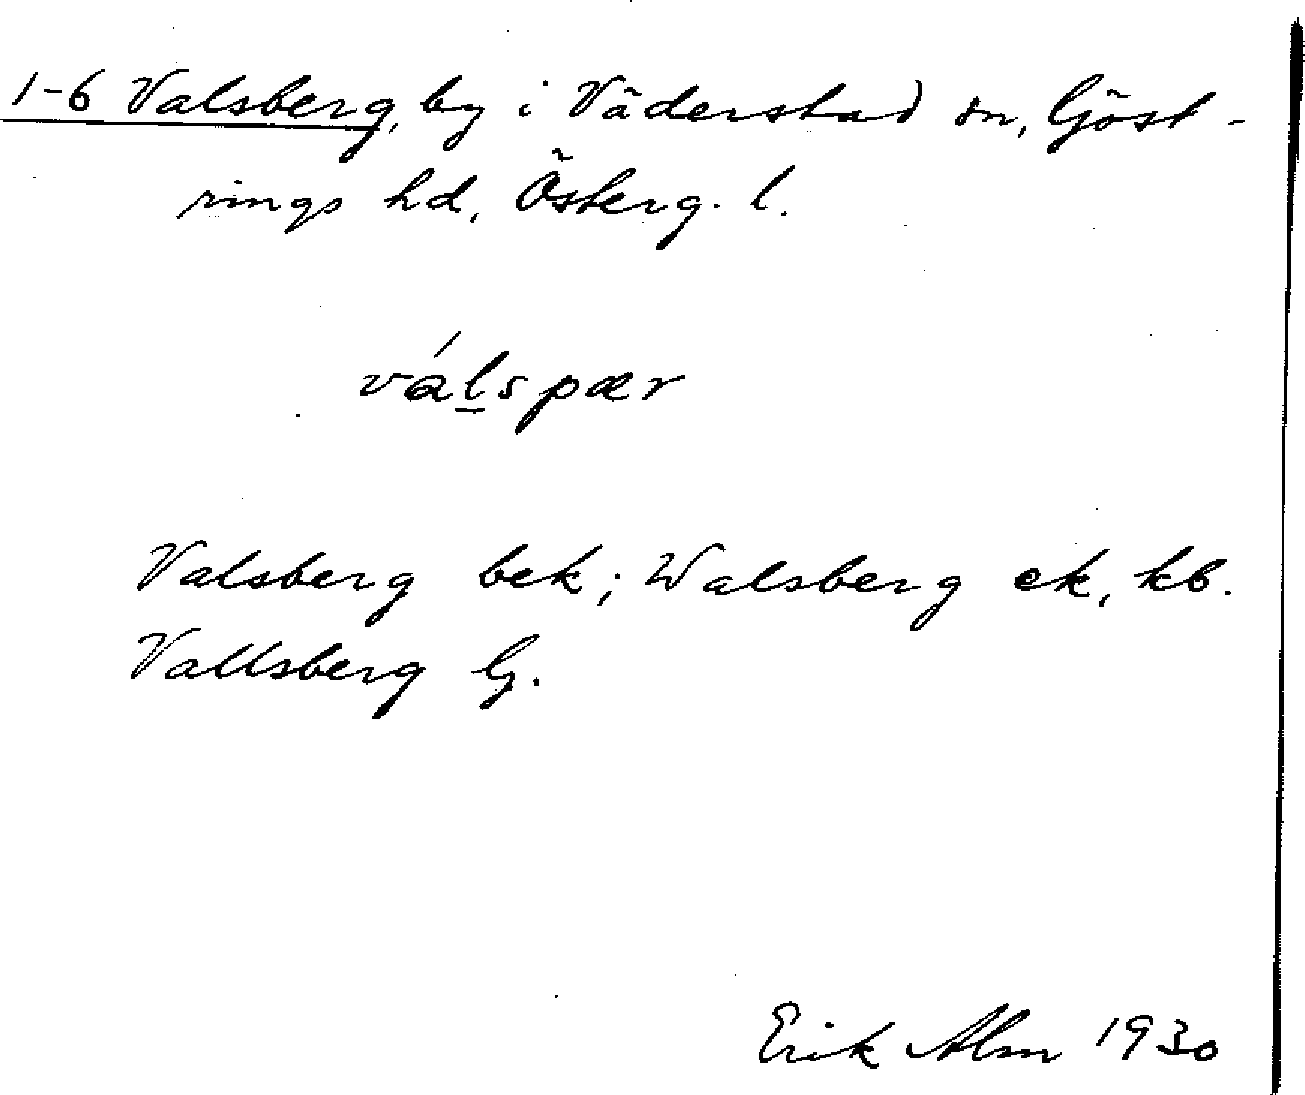 1-6 Valsberg, by i Väderstad sn, Göst-
rings hd, Österg. l.
válspær
Valsberg bek; Walsberg ek, kb.
Vallsberg G.
Erik Alm 1930